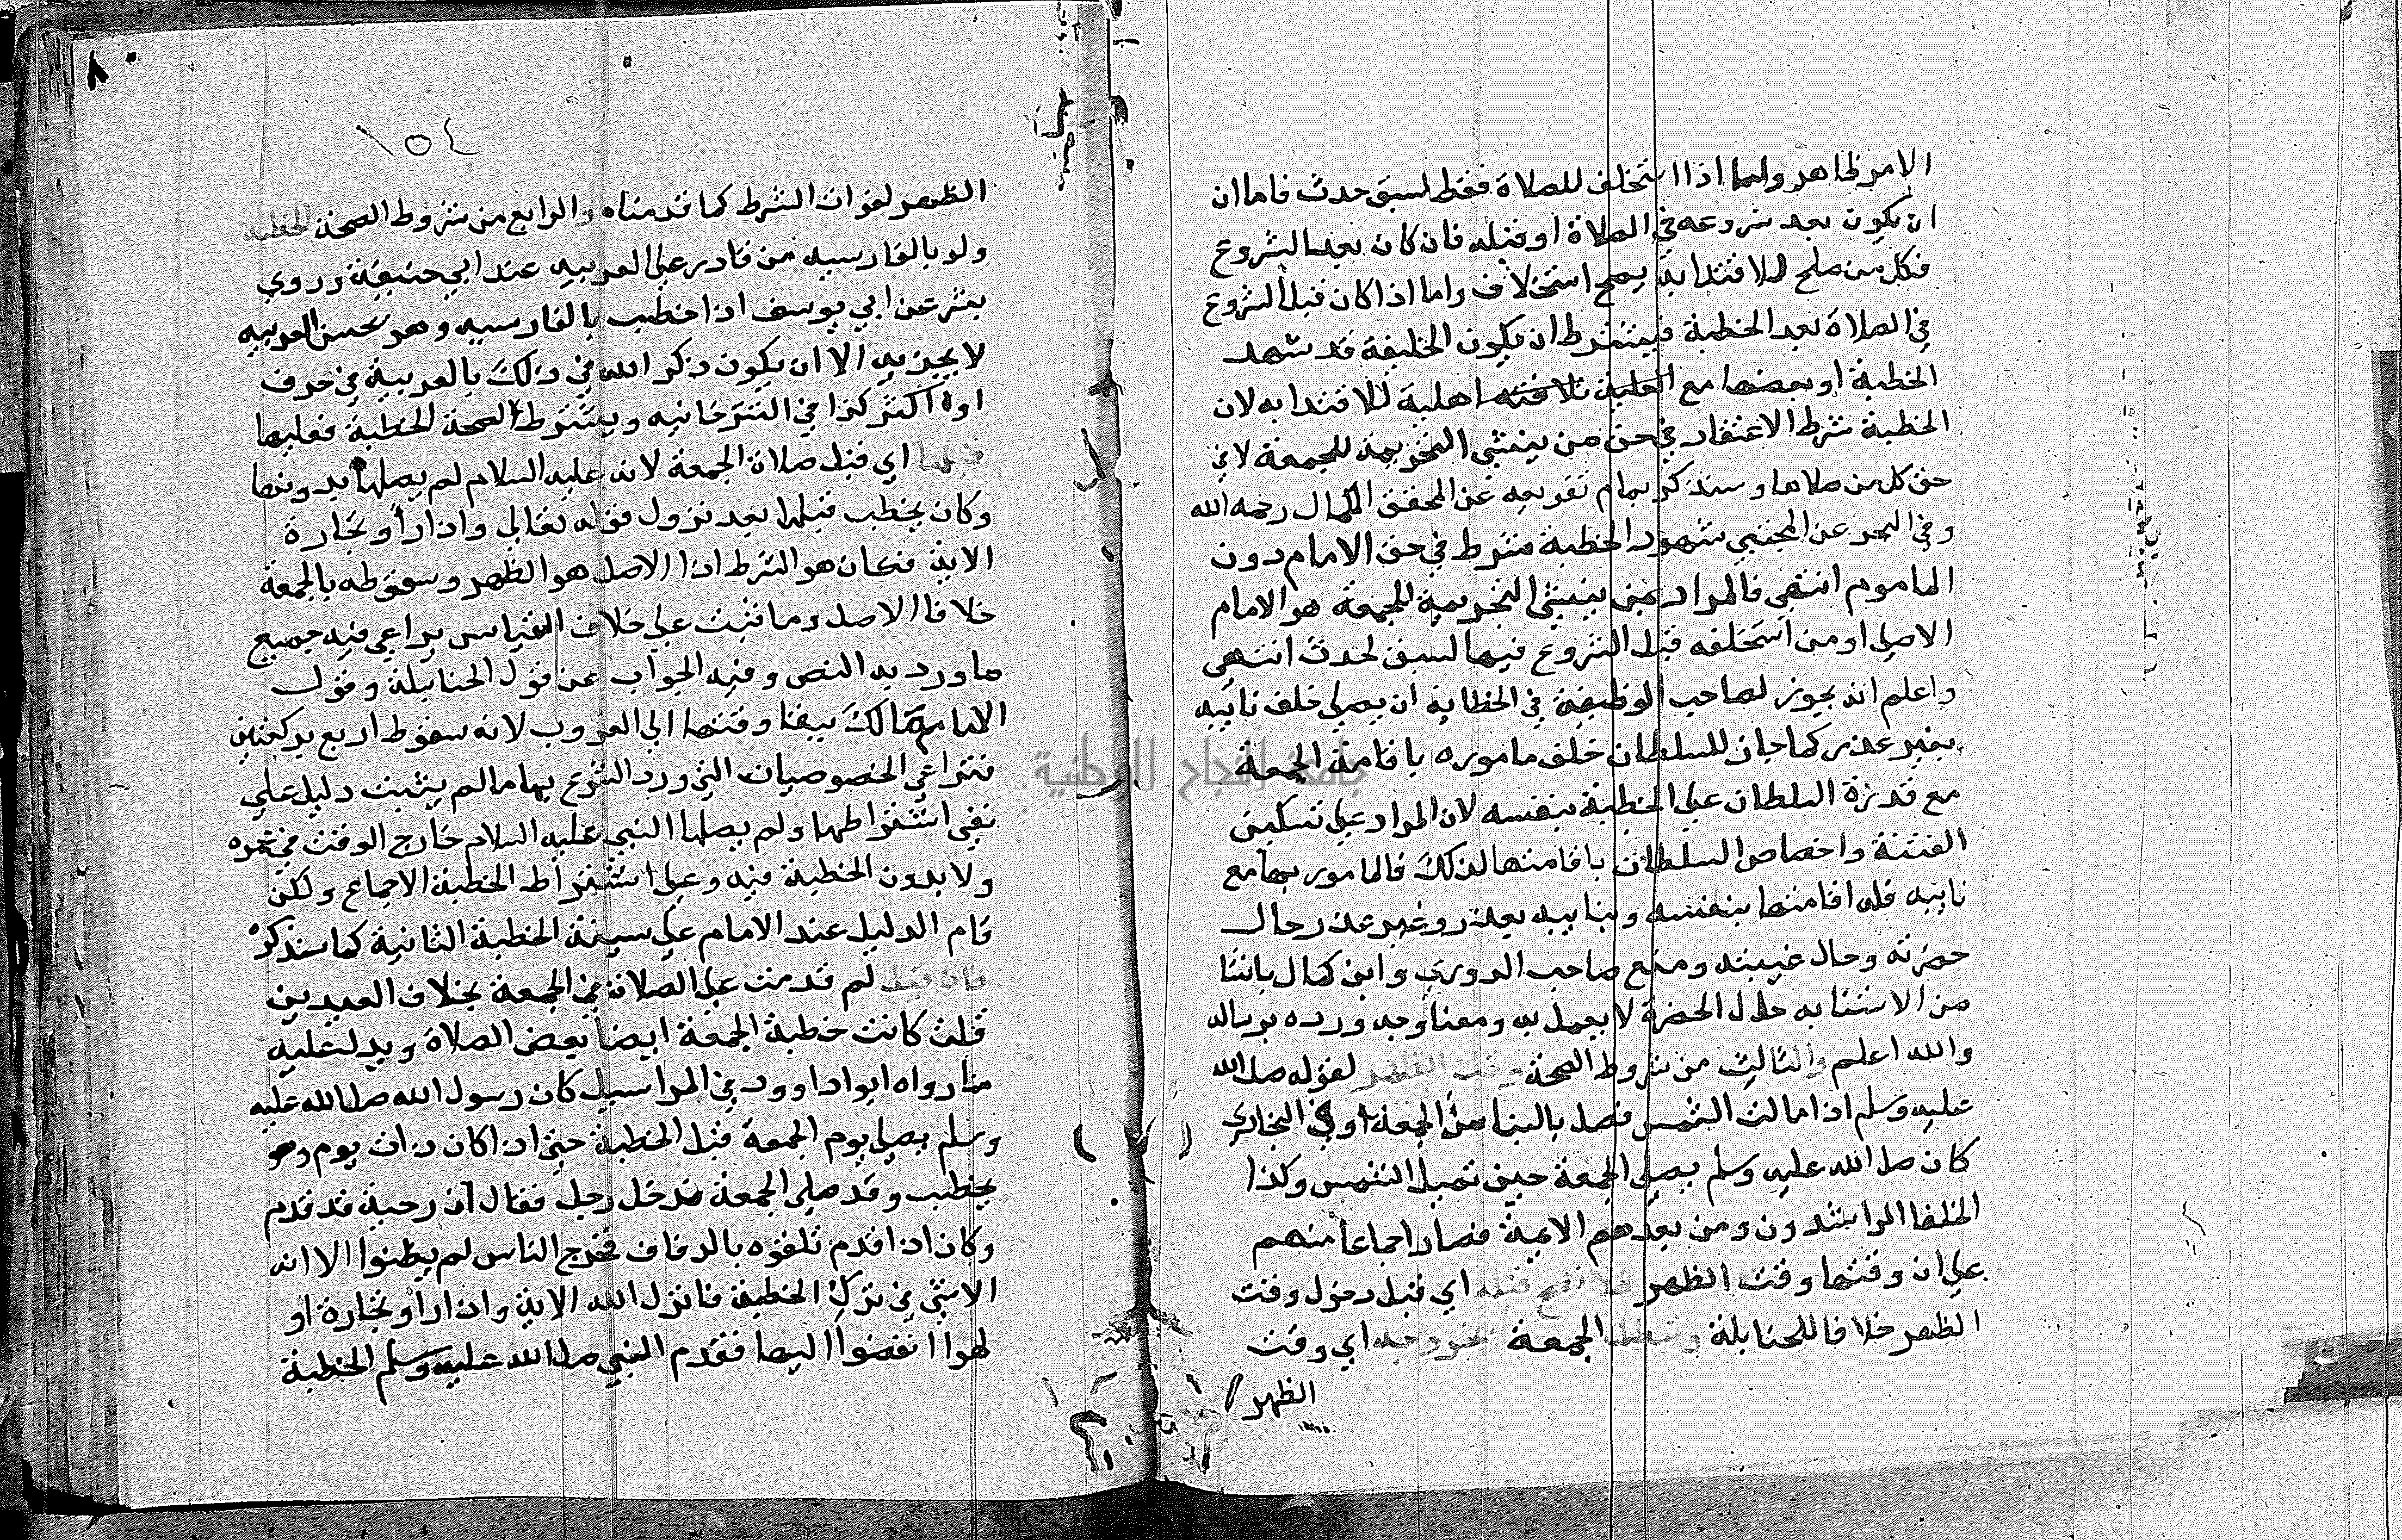 الامر ظاهر واما اذا استخلف للصلاة فقط لسبق حدث فاما ان
ان يكون بعد شروعه في الصلاة او قبله فان كان بعد الشروع
فكل من صلح للاقتدا به يصح استخلاف واما اذا كان قبل الشروع
في الصلاة بعد الخطبة فيشترط ان يكون الخليفة قد شهد
الخطبة او بعضها مع اهلية للاقتدا به لان
الخطبة شرط الانعقاد في حق من ينشي التحريمة للجمعة لا في
حق كل من صلاها وسنذكر تمام تفريعه عن المحقق الكمال رحمه الله
وفي البحر عن المجتبي شهود الخطبة شرط في حق الامام دون
الماموم انتهي فالمراد بمن ينشي التحريمة للجمعة هو الامام
الاصل او من استخلفه قبل الشروع فيها لسبق لحدث انتهي
واعلم انه يجوز لصاحب الوظيفة في الخطابة ان يصلي خلف نايبه
بغير عذر كما جاز للسلطان خلف ماموره باقامة الجمعة
مع قدرة السلطان علي الخطبة بنفسه لان المراد علي تسكين
الفتنة واختصاص السلطان باقامتها لذلك فالمامور بها مع
نايبه فله اقامتها بنفسه وبنايبه بعذر وغير عذر حال
حضرته وحال غيبته ومنع صاحب الدرر وابن كمال باشا
من الاستنابه حال الحضرة لا يعمل به ومعنا وجه ورده برساله
والله اعلم والثالث من شروط الصحة وقت الظهر لقوله صلى الله
عليه وسلم اذا مالت الشمس فصل بالناس الجمعة وفي البخاري
كان صلى الله عليه وسلم يصلي الجمعة حين تميل الشمس وكذا
الخلفا الراشدون ومن بعدهم الايمة فصار اجماعا منهم
علي ان وقتها وقت الظهر فلا تصح قبله اي قبل دخول وقت
الظهر خلافا للحنابلة وتبطل الجمعة بخروجه اي وقت
الظهر
٨٠
١٥٤
الظهر لفوات الشرط كما قدمناه والرابع من شروط الصحة الخطبة
ولو بالفارسيه من قادر علي العربيه عند ابي حنيفة وروي
بشر عن ابي يوسف اذا خطب بالفارسيه وهو يحسن العربيه
لا يجزيه الا ان يكون ذكر الله في ذلك بالعربية في حرف
او اكثر كذا في التترخانيه ويشترط لصحة الخطبة فعليها
قبلها اي قبل صلاة الجمعة لانه عليه السلام لم يصلها بدونها
وكان يخطب قبلها بعد نزول قوله تعالي واذا راو تجارة
الاية فكان هو الشرط اذا الاصل هو الظهر وسقوطه بالجمعة
خلافا الاصل وما ثبت علي خلاف القياس يراعي فيه جميع
ما ورد به النص وفيه الجواب عن قول الحنابلة وقول
الامام مالك يبقا وقتها الي الغروب لانه سقوط اربع بركعتين
فتراعي الخصوصيات التي ورد الشرع بها ما لم يثبت دليل علي
نفي اشتراطها ولم يصلها النبي عليه السلام خارج الوقت في عمره
ولا بدون الخطبة فيه وعلي اشتراط الخطبة الاجماع ولكن
قام الدليل عند الامام علي سنية الخطبة الثانية كما سنذكره
فان قيل لم قدمت علي الصلاة في الجمعة بخلاف العيدين
قلت كانت خطبة الجمعة ايضا بعض الصلاة ويدل عليه
ما رواه ابوا داوود في المراسيل كان رسول الله صلى الله عليه
وسلم يصلي يوم الجمعة قبل الخطبة حتي اذا كان ذات يوم وهو
يخطب وقد صلى الجمعة فدخل رجل فقال ان دحية قد قدم
وكان اذا قدم تلقوه بالدفاف فخرج الناس لم يظنوا الا انه
لا شي في ترك الخطبة فانزل الله الاية واذا راو تجارة او
لهوا انفضوا اليها فقدم النبي صلى الله عليه وسلم الخطبة
جامعة النجاح الوطنية